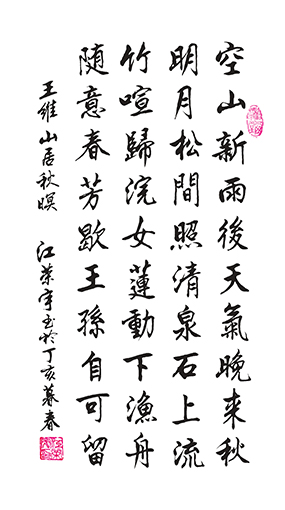 空山新雨後天氣晚來秋
明月松間照清泉石上流
竹喧歸浣女蓮動下漁舟
随意春芳歇王孫自可留
王維山居秋暝 江榮宇书於丁亥暮春